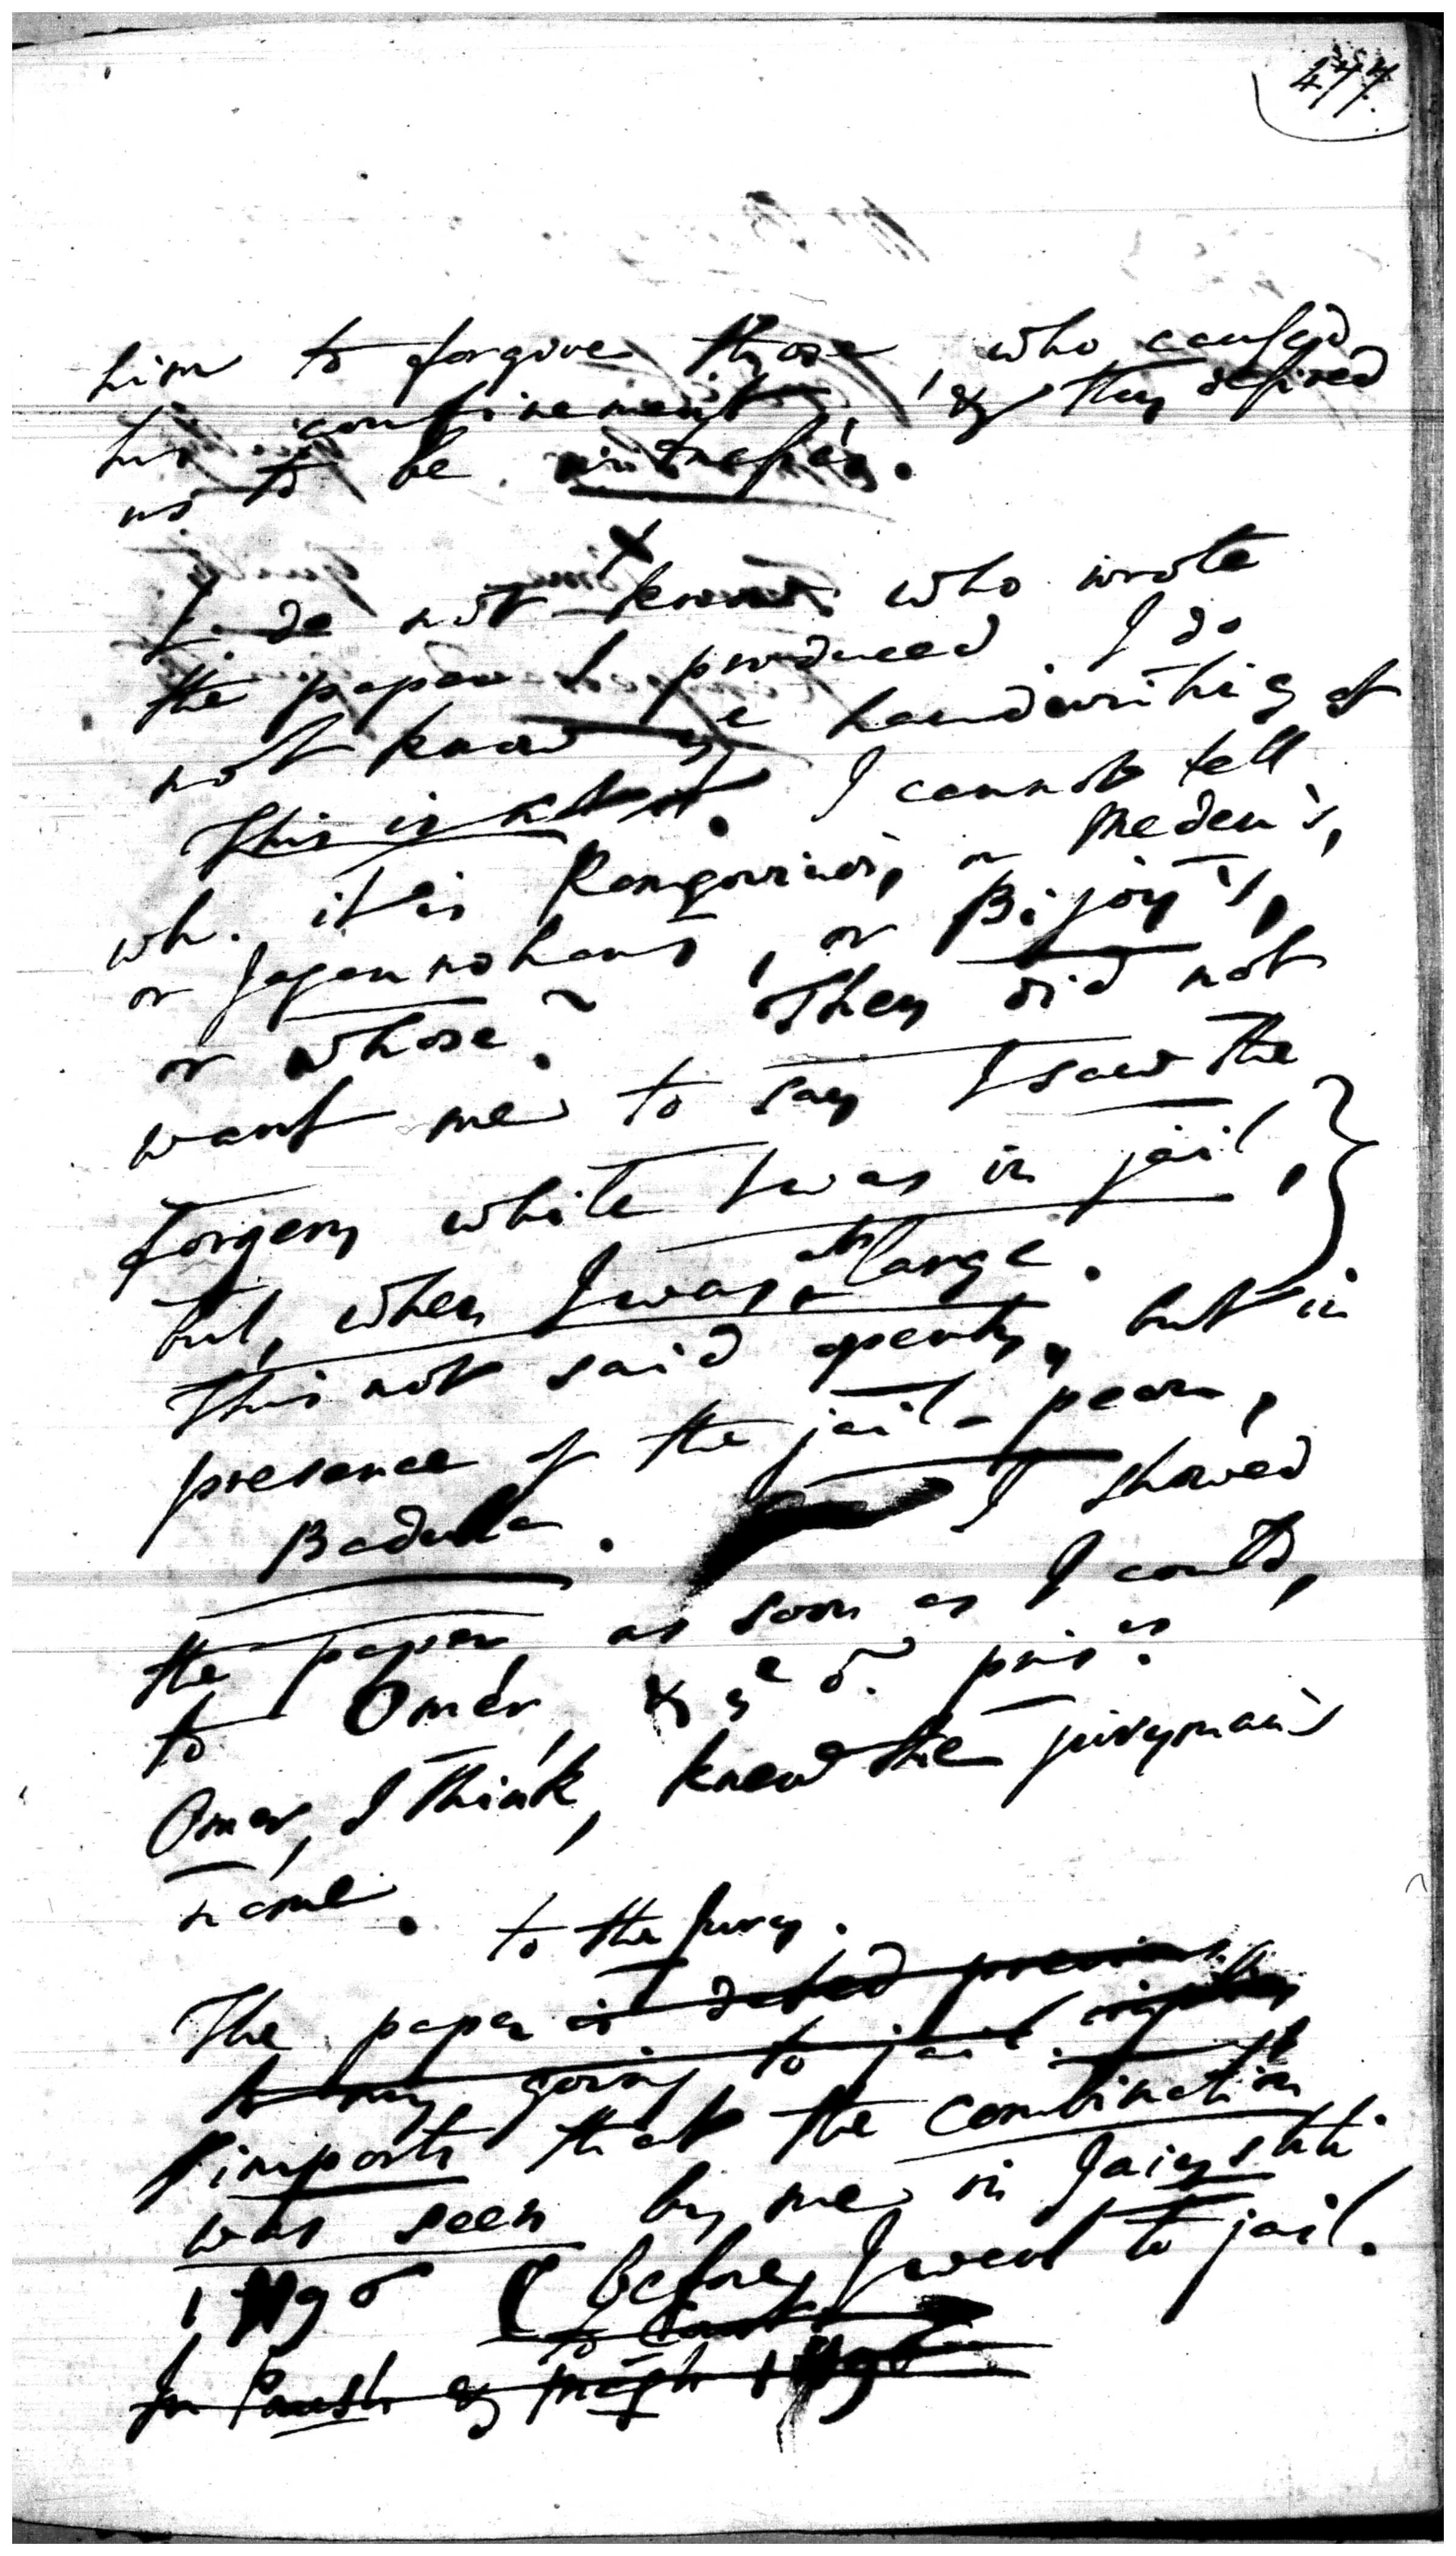 477.
him to forgive those, who caused
his confinement, & they desired
us to be witnesses.
I do not know who wrote
the paper I produced. I do
not know ye handwriting of
this is not it. I cannot tell
wh. it is Ramgovind's, or Meden's,
or Jaganmohans, or Bijoy's,
or whose. They did not
want me to say I saw the
forgery while I was in jail,
but, when I was at large.
This not said openly, but in
presence of the jail-peon,
Badulla. I showed
the paper, as soon as I could,
to Omer, & ye o. pris.rs
Omer, I think, knew the juryman's
name.
to the Jury.
The paper is dated previous
to my going to jail.
imports that the combination
was seen by me in Jaiystth.
1190 (before I went to jail.
In Paush & Magh 1190